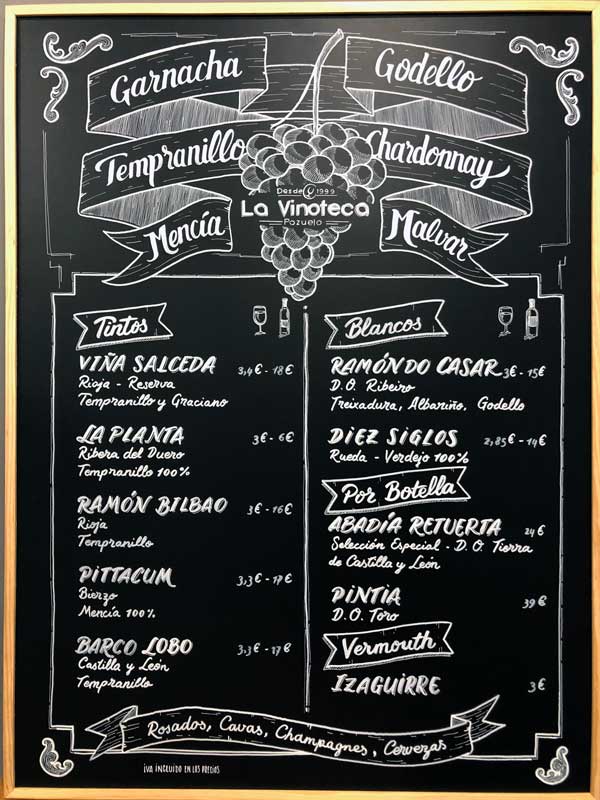 Garnacha
Godello
Tempranillo
Chardonnay
Mencía
Malvar
Desde 1999
La Vinoteca
Pozuelo
Tintos
VIÑA SALCEDA 3,4€ - 18€
Rioja - Reserva
Tempranillo y Graciano
LA PLANTA 3€ - 6€
Ribera del Duero
Tempranillo 100%
RAMÓN BILBAO 3€ - 16€
Rioja
Tempranillo
PITTACUM 3,3€ - 17€
Bierzo
Mencía 100%
BARCO LOBO 3,3€ - 17€
Castilla y León
Tempranillo
Blancos
RAMÓN DO CASAR 3€ - 15€
D.O. Ribeiro
Treixadura, Albariño, Godello
DIEZ SIGLOS 2,85€ - 14€
Rueda - Verdejo 100%
Por Botella
ABADÍA RETUERTA 24€
Selección Especial - D.O. Tierra
de Castilla y León
PINTIA 39€
D.O. Toro
Vermouth
IZAGUIRRE 3€
Rosados, Cavas, Champagnes, Cervezas
IVA INCLUIDO EN LOS PRECIOS